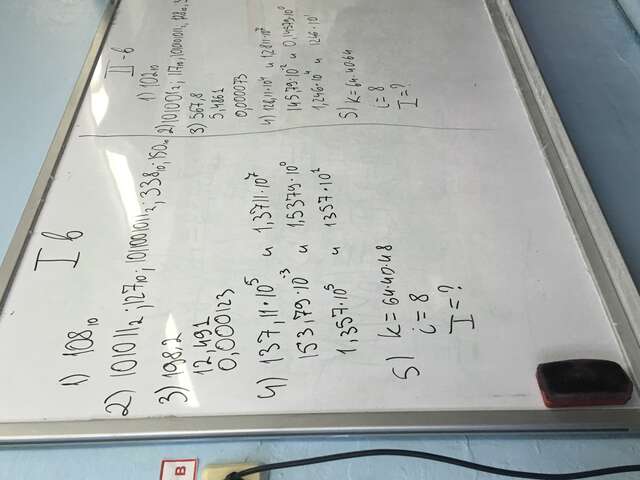 В
I в
1) 108₁₀
2) 101011₂; 127₁₀; 101001011₂; 338₁₀; 150₁₀
3) 198,2
12,491
0,000123
4) 137,11·10⁵ и 1,3711·10⁷
153,79·10⁻³ и 1,5379·10⁰
1,357·10⁵ и 1357·10²
5) K=64·40·48
i=8
I=?
II-в
1) 102₁₀
2) 101001₂; 117₁₀; 101010111₂; 128₁₀; 3
3) 567,8
5,4861
0,000073
4) 128,11·10⁴ и 12811·10⁷
145,79·10⁻² и 0,14579·10⁰
1,246·10⁴ и 1246·10¹
5) K=64·40·64
i=8
I=?